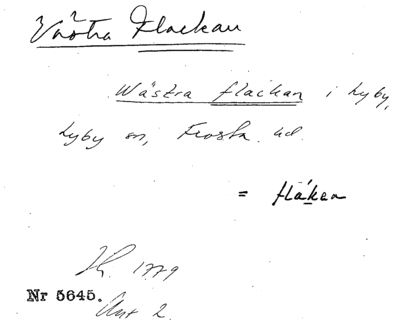 Västra Flackan
Wästra flackan i Lyby,
Lyby sn, Frosta hd.
= flåken
1779
Nr 5645.
Akt 2